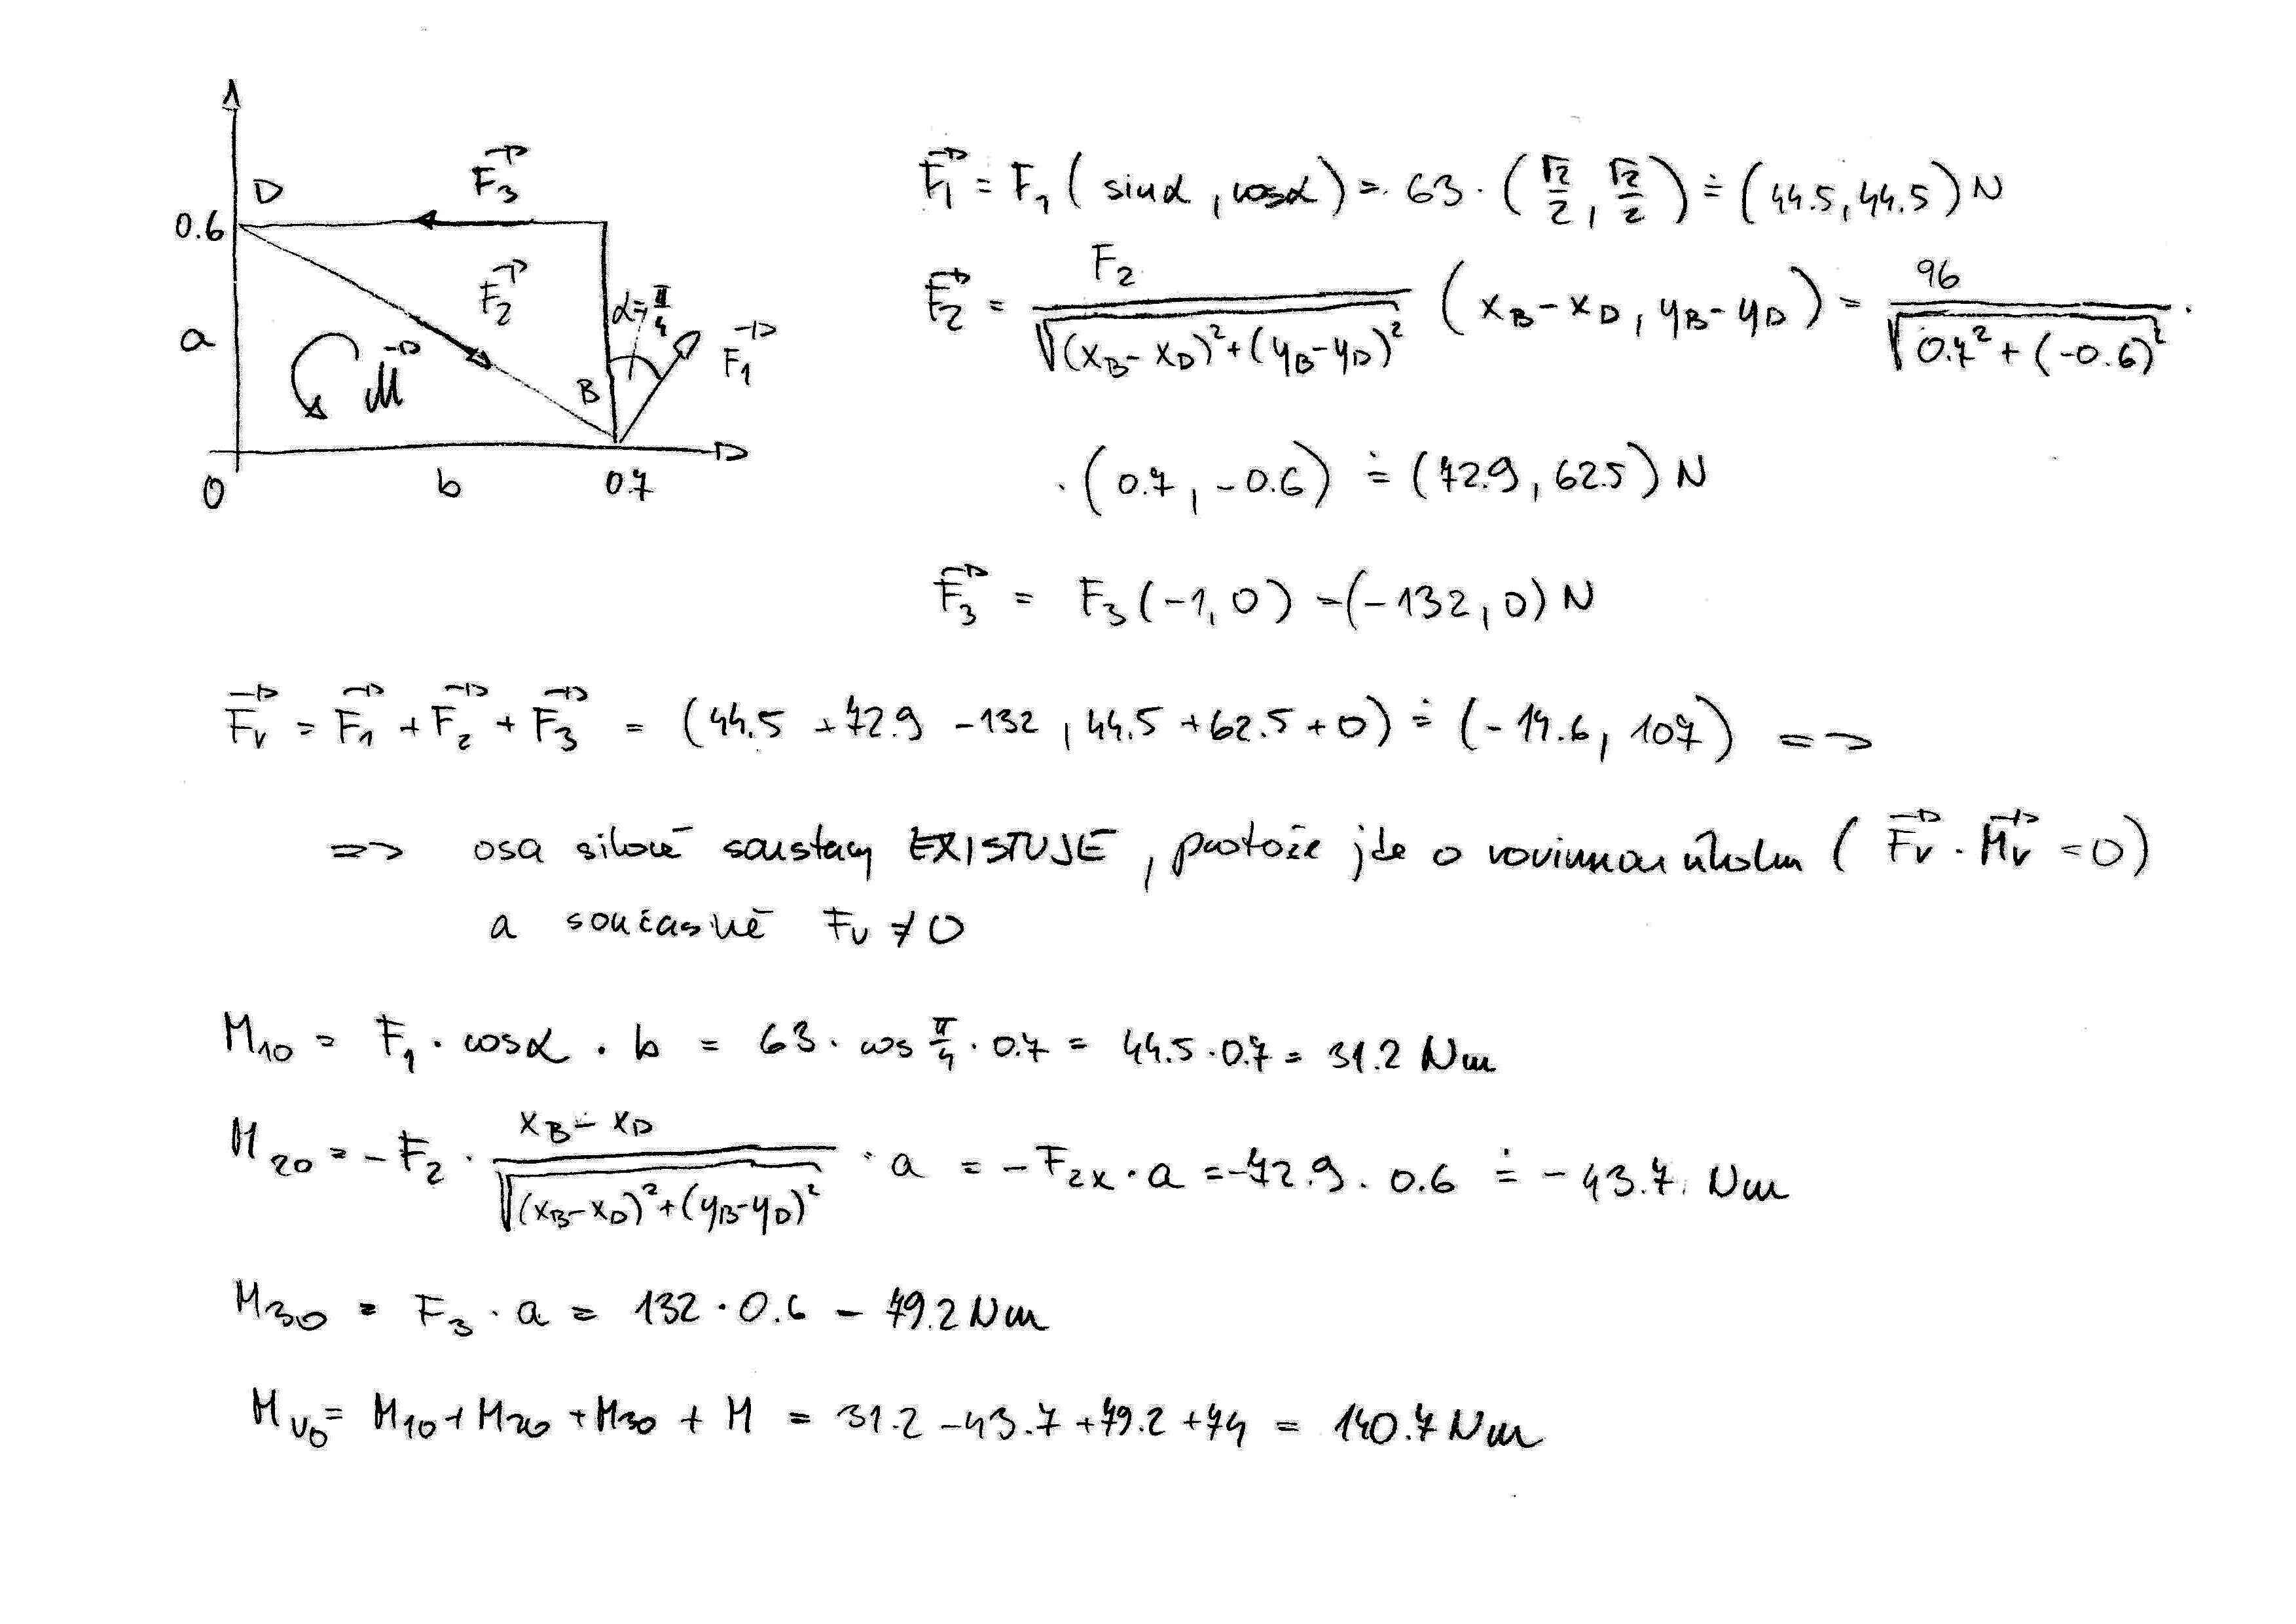 D
F₃
0.6
F₂
α=π/4
F₁
a
M
B
0
b
0.7
F₁ = F₁ (sinα, cosα) = 63 · (√2/2, √2/2) ≐ (44.5, 44.5) N
F₂ = F₂/√((x_B-x_D)²+(y_B-y_D)²) (x_B-x_D, y_B-y_D) = 96/√(0.7²+(-0.6)²) ·
· (0.7, -0.6) ≐ (72.9, 62.5) N
F₃ = F₃ (-1, 0) = (-132, 0) N
F_v = F₁ + F₂ + F₃ = (44.5 + 72.9 - 132, 44.5 + 62.5 + 0) ≐ (-14.6, 107) =>
=> osa silové soustavy EXISTUJE, protože jde o rovinnou úlohu (F_v · M_v = 0)
a současně F_v ≠ 0
M₁₀ = F₁ · cosα · b = 63 · cos π/4 · 0.7 = 44.5 · 0.7 = 31.2 Nm
M₂₀ = -F₂ · (x_B-x_D)/√((x_B-x_D)²+(y_B-y_D)²) · a = -F₂ₓ · a = -72.9 · 0.6 ≐ -43.7 Nm
M₃₀ = F₃ · a = 132 · 0.6 = 79.2 Nm
M_v₀ = M₁₀ + M₂₀ + M₃₀ + M = 31.2 - 43.7 + 79.2 + 74 = 140.7 Nm